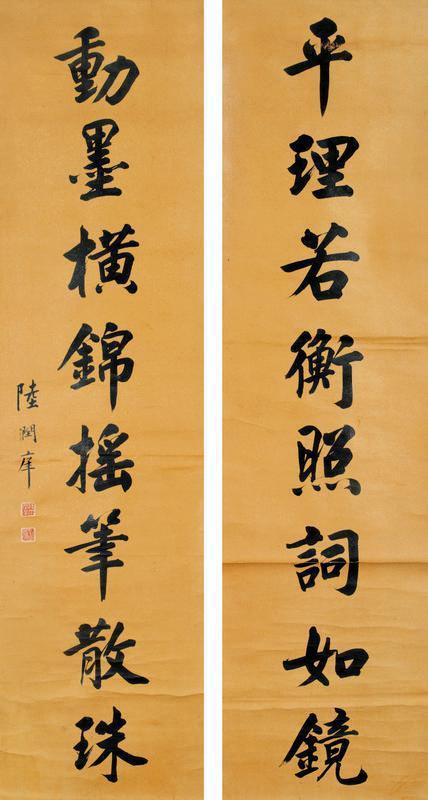 平理若衡照詞如鏡
動墨横錦摇筆散珠
陸潤庠